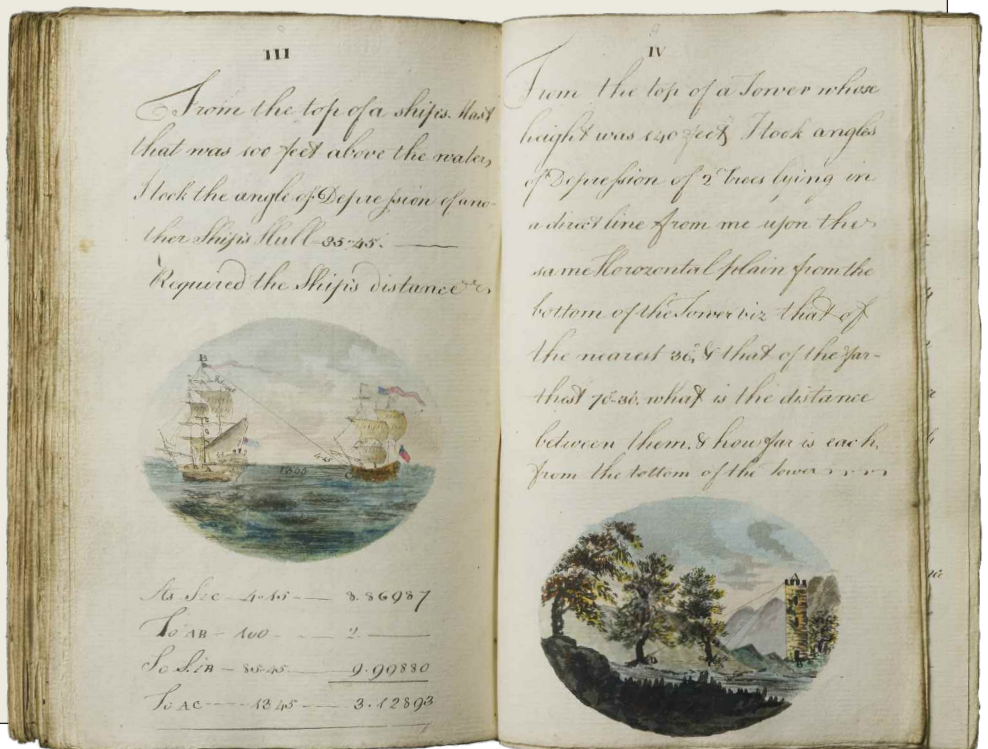 III
From the top of a ship's Mast
that was 100 feet above the water,
I took the angle of Depression of ano-
ther Ship's Hull 85-45.
Required the Ship's distance
B
4-15
1345
As S:c 4-15 8.86987
To AB 100 2.
So S:B 85-45 9.99880
To AC 1345 3.12893
IV
From the top of a Tower whose
height was 140 feet I took angles
of Depression of 2 Trees lying in
a direct line from me upon the
same Horozontal plain from the
bottom of the Tower viz that of
the nearest 36, & that of the far-
thest 70-30. what is the distance
between them. & how far is each
from the bottom of the tower
D
B